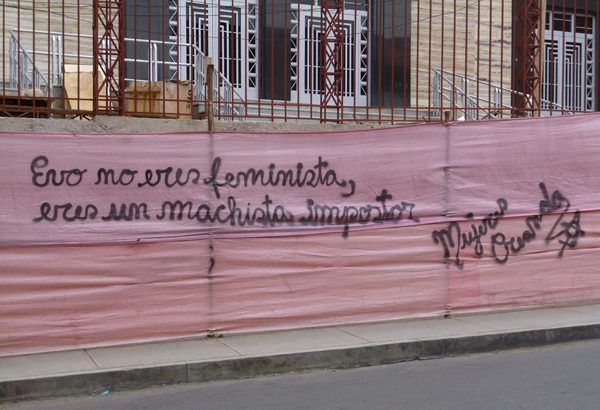 Evo no eres feminista,
eres un machista impostor
Mujeres
Creando